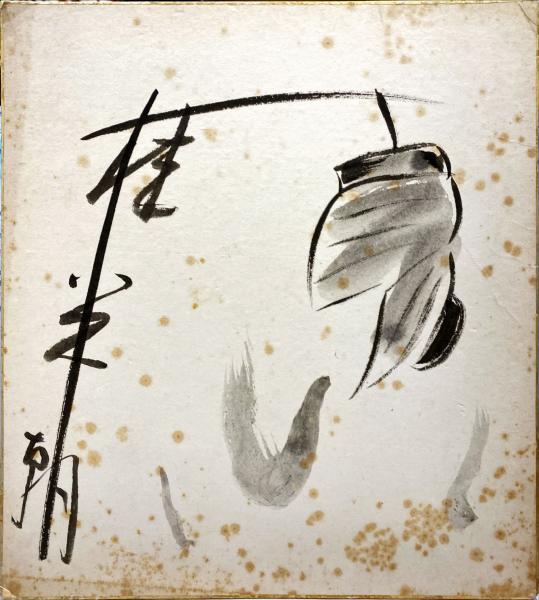 桂米朝